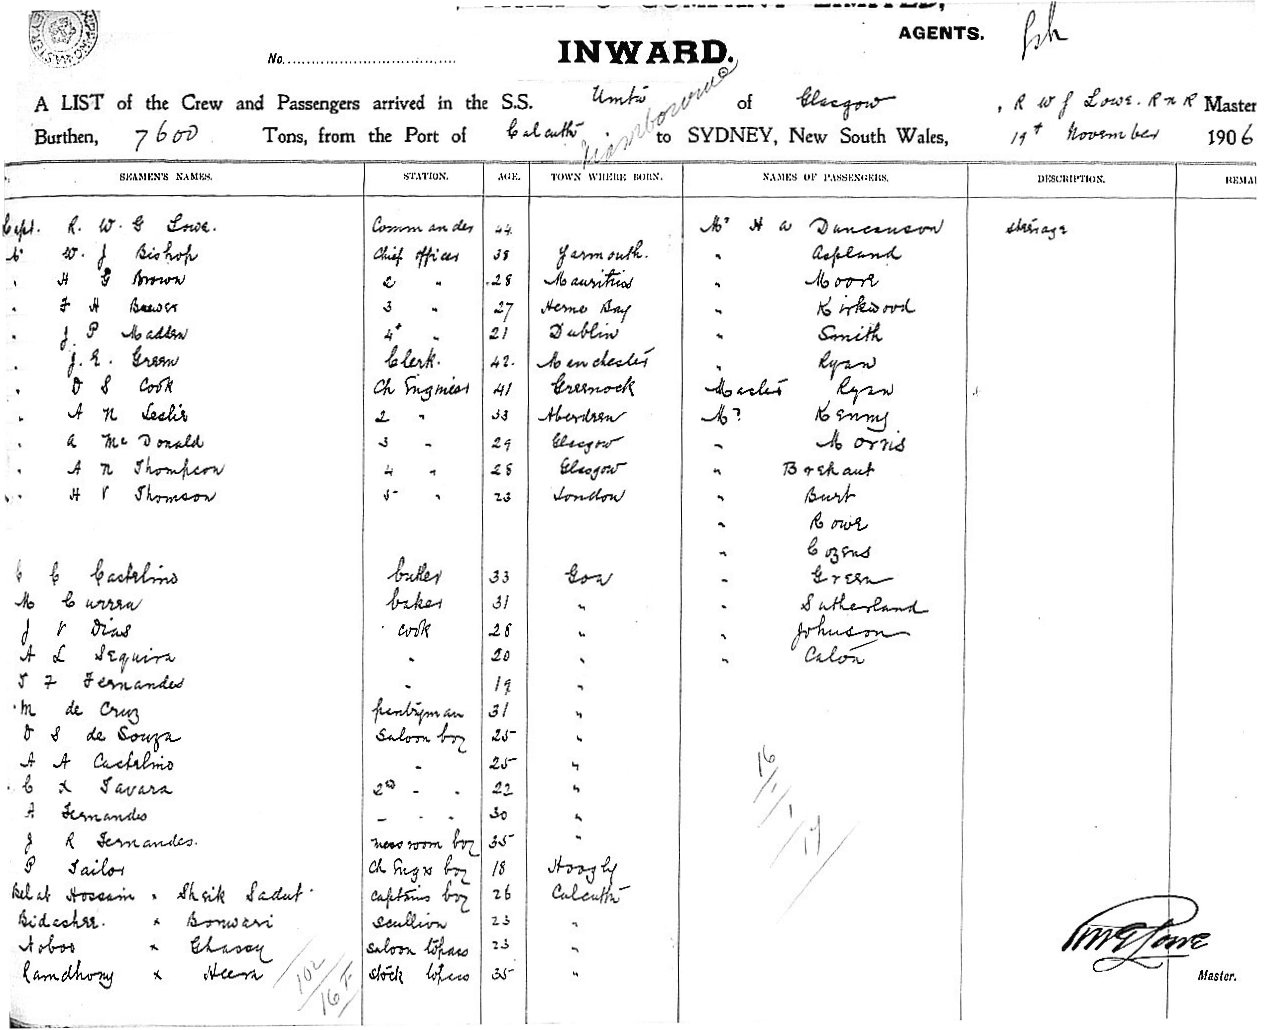 AGENTS.
No.
INWARD.
A LIST of the Crew and Passengers arrived in the S.S. Umta of Glasgow, R W G Lowe. R N R Master
Burthen, 7600 Tons, from the Port of Calcutta to SYDNEY, New South Wales, 19th November 1906
SEAMEN'S NAMES. STATION. AGE. TOWN WHERE BORN. NAMES OF PASSENGERS. DESCRIPTION. REMA
Capt. R. W. G Lowe. Commander 44 Mr H A Duncanson steerage
Mr W. J Bishop Chief officer 38 Yarmouth. " Aspland
" H G Brown 2 " 28 Mauritius " Moore
" F H Brewer 3 " 27 Herne Bay " Kirkwood
" J. P Madden 4th " 21 Dublin " Smith
" J. E. Green Clerk. 42. Manchester " Ryan
" D S Cook Ch Engineer 41 Greenock Master Ryan
" A N Leslie 2 " 33 Aberdeen Mr Kenny
" A McDonald 3 " 29 Glasgow " Morris
" A N Thompson 4 " 28 Glasgow " Brehaut
" H V Thomson 5 " 23 London " Burt
" Rowe
" Cozens
C C Castelino butler 33 Goa " Green
M Currea baker 31 " " Sutherland
J V Dias cook 28 " " Johnson
A L Sequira " 20 " "
F Fernandes " 19 "
M de Cruz pantryman 31 "
D S de Souza Saloon boy 25 "
A A Castelino " 25 "
C x Tavara 2nd " " 22 "
A Fernandes " " " 30 "
J R Fernandes. messroom boy 35 "
P Tailor Ch Engrs boy 18 Hoogly
Belat Hossain x Sheik Sadut captains boy 26 Calcutta
x Bonwari scullion 23 "
Noboo x saloon topass 23 "
Ramdhony x Heera stock topass 35 "
16
1
17
102
16
R W G Lowe
Master.